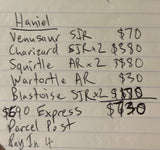 Haniel
Venusaur SIR $70
Charizard SIR x2 $380
Squirtle AR x2 $80
Wartortle AR $30
Blastoise SIR x2 $170
$690 Express $730
Parcel Post
Pay In 4